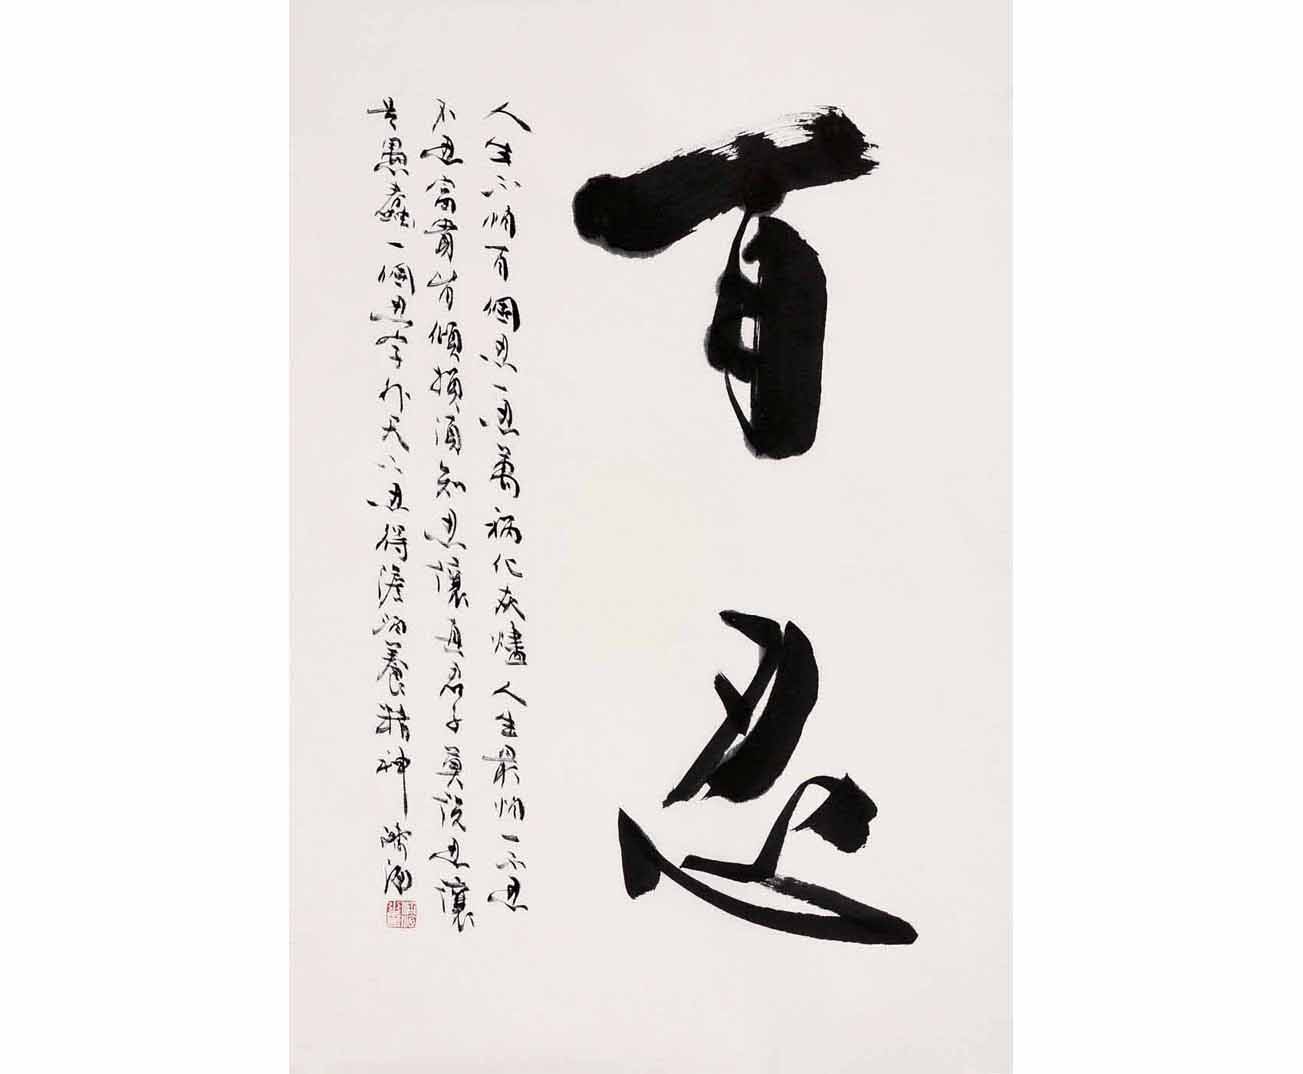 百忍
人生不怕百個忍一忍萬禍化灰燼人生最怕一不忍
不忍富貴皆傾損須知忍讓真君子莫說忍讓
是愚蠢一個忍字行天下忍得澹泊養精神